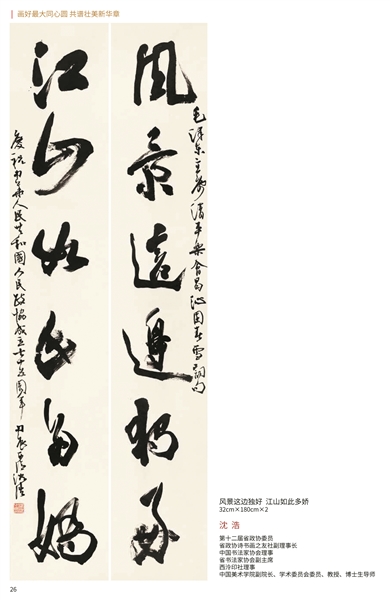 画好最大同心圆 共谱壮美新华章
风景这边独好
毛泽东主席清平乐会昌沁园春雪词句
江山如此多娇
庆祝中华人民共和国人民政协成立七十五周年
风景这边独好 江山如此多娇
32cm×180cm×2
沈 浩
第十二届省政协委员
省政协诗书画之友社副理事长
中国书法家协会理事
省书法家协会副主席
西泠印社理事
中国美术学院副院长、学术委员会委员、教授、博士生导师
26